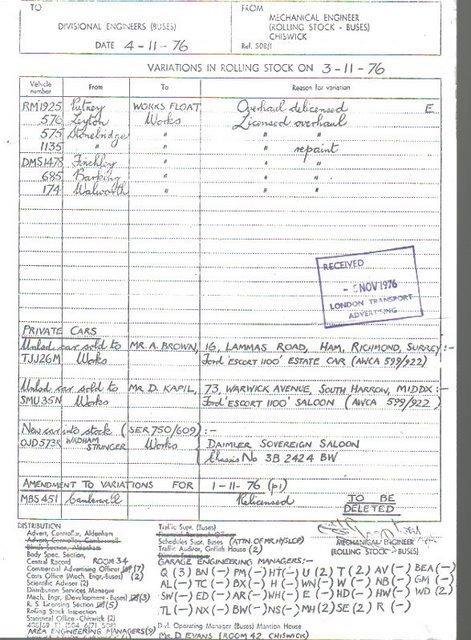 TO
FROM
DIVISIONAL ENGINEERS (BUSES)
MECHANICAL ENGINEER
(ROLLING STOCK - BUSES)
CHISWICK
DATE 4-11-76
Ref. 508/1
VARIATIONS IN ROLLING STOCK ON 3-11-76
Vehicle number From To Reason for variation
RM1925 Putney WORKS FLOAT Overhaul delicensed E
576 Leyton Works Licensed overhaul
575 Stonebridge " " "
1135 " " " repaint
DMS1478 Finchley " " "
685 Barking " " "
174 Walworth " " "
RECEIVED
- 5 NOV 1976
LONDON TRANSPORT
ADVERTISING
PRIVATE CARS
Unlsd car sold to MR. A. BROWN, 16, LAMMAS ROAD, HAM, RICHMOND, SURREY:-
TJJ26M Works Ford 'ESCORT 1100' ESTATE CAR (AWCA 599/922)
Unlsd car sold to MR. D. KAPIL, 73, WARWICK AVENUE, SOUTH HARROW, MIDDX:-
SMU35N Works Ford 'ESCORT 1100' SALOON (AWCA 599/922)
New car into stock (SER 750/609):-
OJD573R WADHAM STRINGER Works DAIMLER SOVEREIGN SALOON
Chassis No 3B 2424 BW
AMENDMENT TO VARIATIONS FOR 1-11-76 (p1)
MBS451 Camberwell Relicensed TO BE
DELETED
DISTRIBUTION
Advert. Controller, Aldenham
Body Spec. Section,
Central Record ROOM 34
Commercial Advertising Officer (7)
Costs Office (Mech. Engr-Buses) (2)
Scientific Adviser (2)
Distribution Services Manager
Mech. Engr. (Development - Buses) (3)
R. S. Licensing Section (5)
Rolling Stock Inspection
Statistical Office - Chiswick (2)
AREA ENGINEERING MANAGERS(9)
Traffic Supt. (Buses)
Schedules Supt. Buses (ATTN. OF MR. HYSLOP)
Traffic Auditor, Griffith House (2)
MECHANICAL ENGINEER
(ROLLING STOCK - BUSES)
GARAGE ENGINEERING MANAGERS:-
Q (3) BN (-) PM (-) HT (-) U (2) T (2) AV (-) BEA (-)
AL (-) TC (-) BX (-) H (-) WN (-) W (-) NB (-) GM (-)
SW (-) ED (-) AR (-) WH (-) E (-) HD (-) HW (-) WD (2)
TL (-) NX (-) BW (-) NS (-) MH (2) SE (2) R (-)
Operating Manager (Buses) Mantion House
MR. D. EVANS (ROOM 42 CHISWICK)